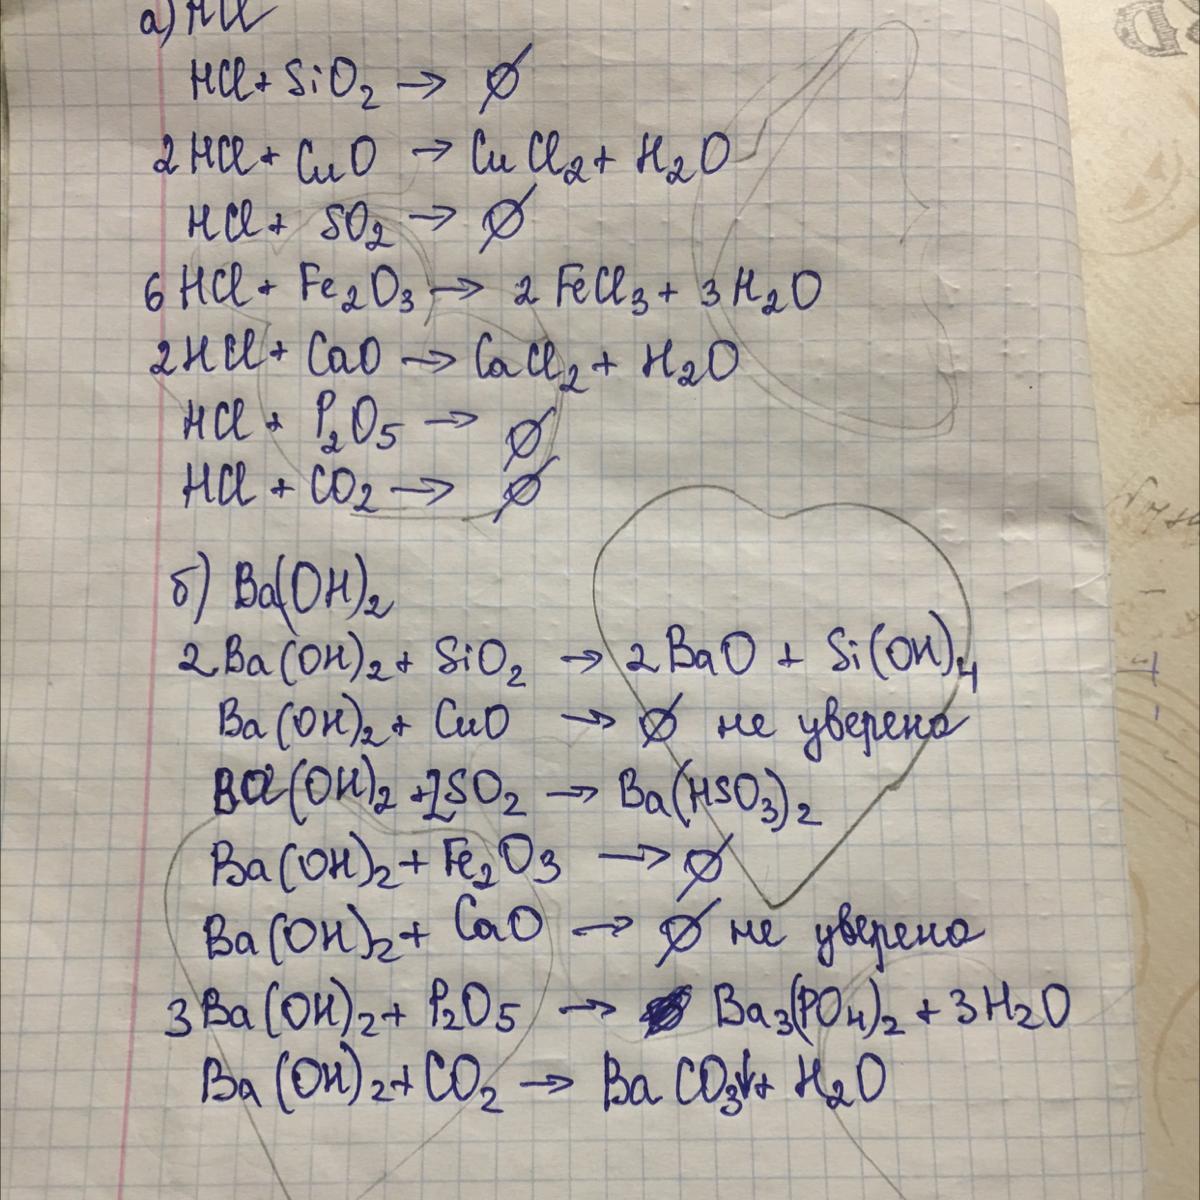 а) HCl
HCl + SiO₂ → ∅
2HCl + CuO → CuCl₂ + H₂O
HCl + SO₂ → ∅
6HCl + Fe₂O₃ → 2FeCl₃ + 3H₂O
2HCl + CaO → CaCl₂ + H₂O
HCl + P₂O₅ → ∅
HCl + CO₂ → ∅
б) Ba(OH)₂
2Ba(OH)₂ + SiO₂ → 2BaO + Si(OH)₄
Ba(OH)₂ + CuO → ∅ не уверена
Ba(OH)₂ + 2SO₂ → Ba(HSO₃)₂
Ba(OH)₂ + Fe₂O₃ → ∅
Ba(OH)₂ + CaO → ∅ не уверена
3Ba(OH)₂ + P₂O₅ → Ba₃(PO₄)₂ + 3H₂O
Ba(OH)₂ + CO₂ → BaCO₃↓ + H₂O